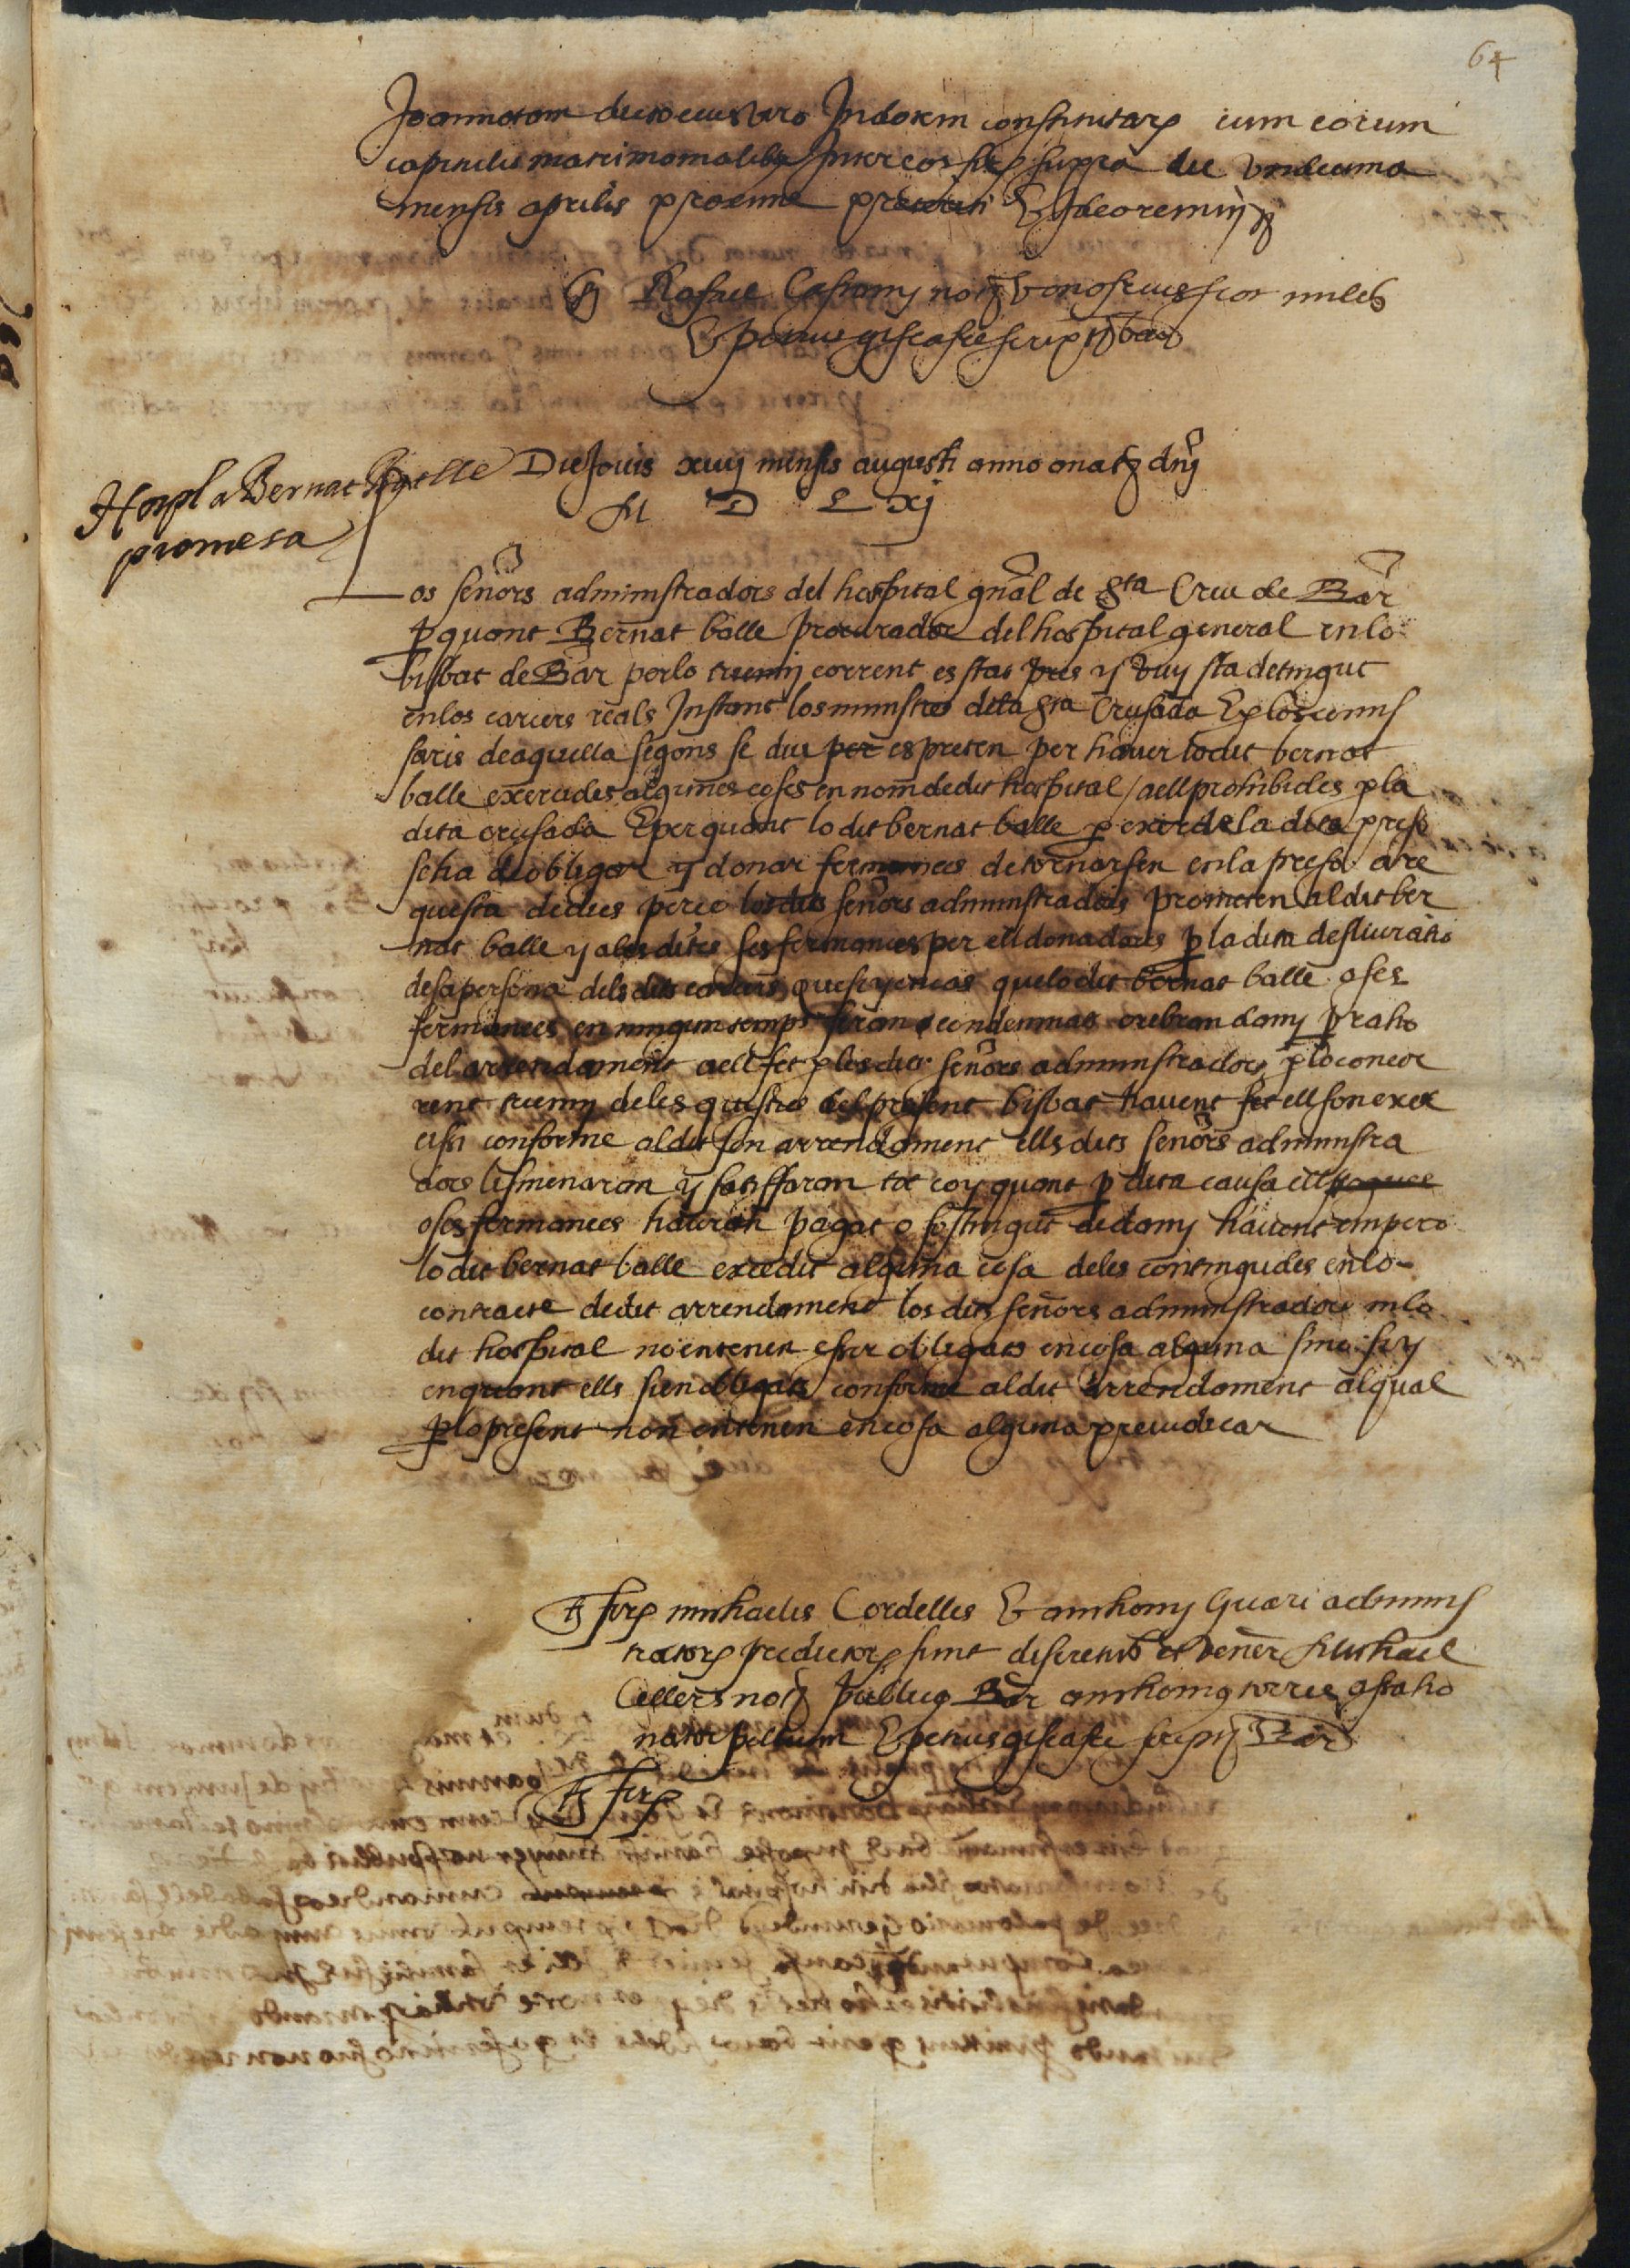 64
Joannotam dicto eius viro In dotem constitutarum cum eorum
capitulis matrimonialibus Inter eos supra die undecima
mensis aprilis proxime preteriti Et Ideo remiserunt
Rafael Castany notarius
Die Jovis xiiij mensis augusti anno a nat dnj
M D L xj
Hospl a Bernat Balle
promesa
Los señors administradors del hospital gnal de Sta Creu de Bar
Per quant Bernat balle procurador del hospital general en lo
bisbat de Bar per lo trienni corrent es stat pres y vuy sta detingut
en los carcers reals Instant los ministres de la Sta Crusada E per los comis
saris de aquella segons se diu per es preten per haver lo dit bernat
balle exercides algunes coses en nom de dit hospital / a ell prohibides per la
dita crusada E per quant lo dit bernat balle per exir de la dita preso
se ha de obligar y donar fermances de tornarsen en la preso a re
questa de dits per ço los dits señors administradors prometen al dit ber
nat balle y a les dites ses fermances per ell donadores per la dita desliuratio
de sa persona dels dits carcers que si y en cas que lo dit bernat balle o ses
fermances en ningun temps seran condemnats o rebran dany per raho
del arrendament a ell fet per los dits señors administradors per lo concor
rent trienni de les questes del present bisbat havent fet ell son exer
cisi conforme al dit son arrendament ells dits señors administra
dors lis menaran y satisffaran tot ço y quant per dita causa ell
o ses fermances hauran pagat o sostingut de dany havent empero
lo dit bernat balle excedit alguna cosa de les contingudes en lo
contracte de dit arrendament los dits señors administradors ni lo
dit hospital no entenen esser obligats en cosa alguna sino si y
en quant ells sien obligats conforme al dit arrendament al qual
per lo present non entenen en cosa alguna preiudicar
Ts firme michaelis Cordelles Et anthonij Guari adminis
tratorum predictorum sunt discretus et vener Michael
Cellers not publicus Bar anthonius torres
pellium Et petrus giscafre scriptor Bar
Ts fir